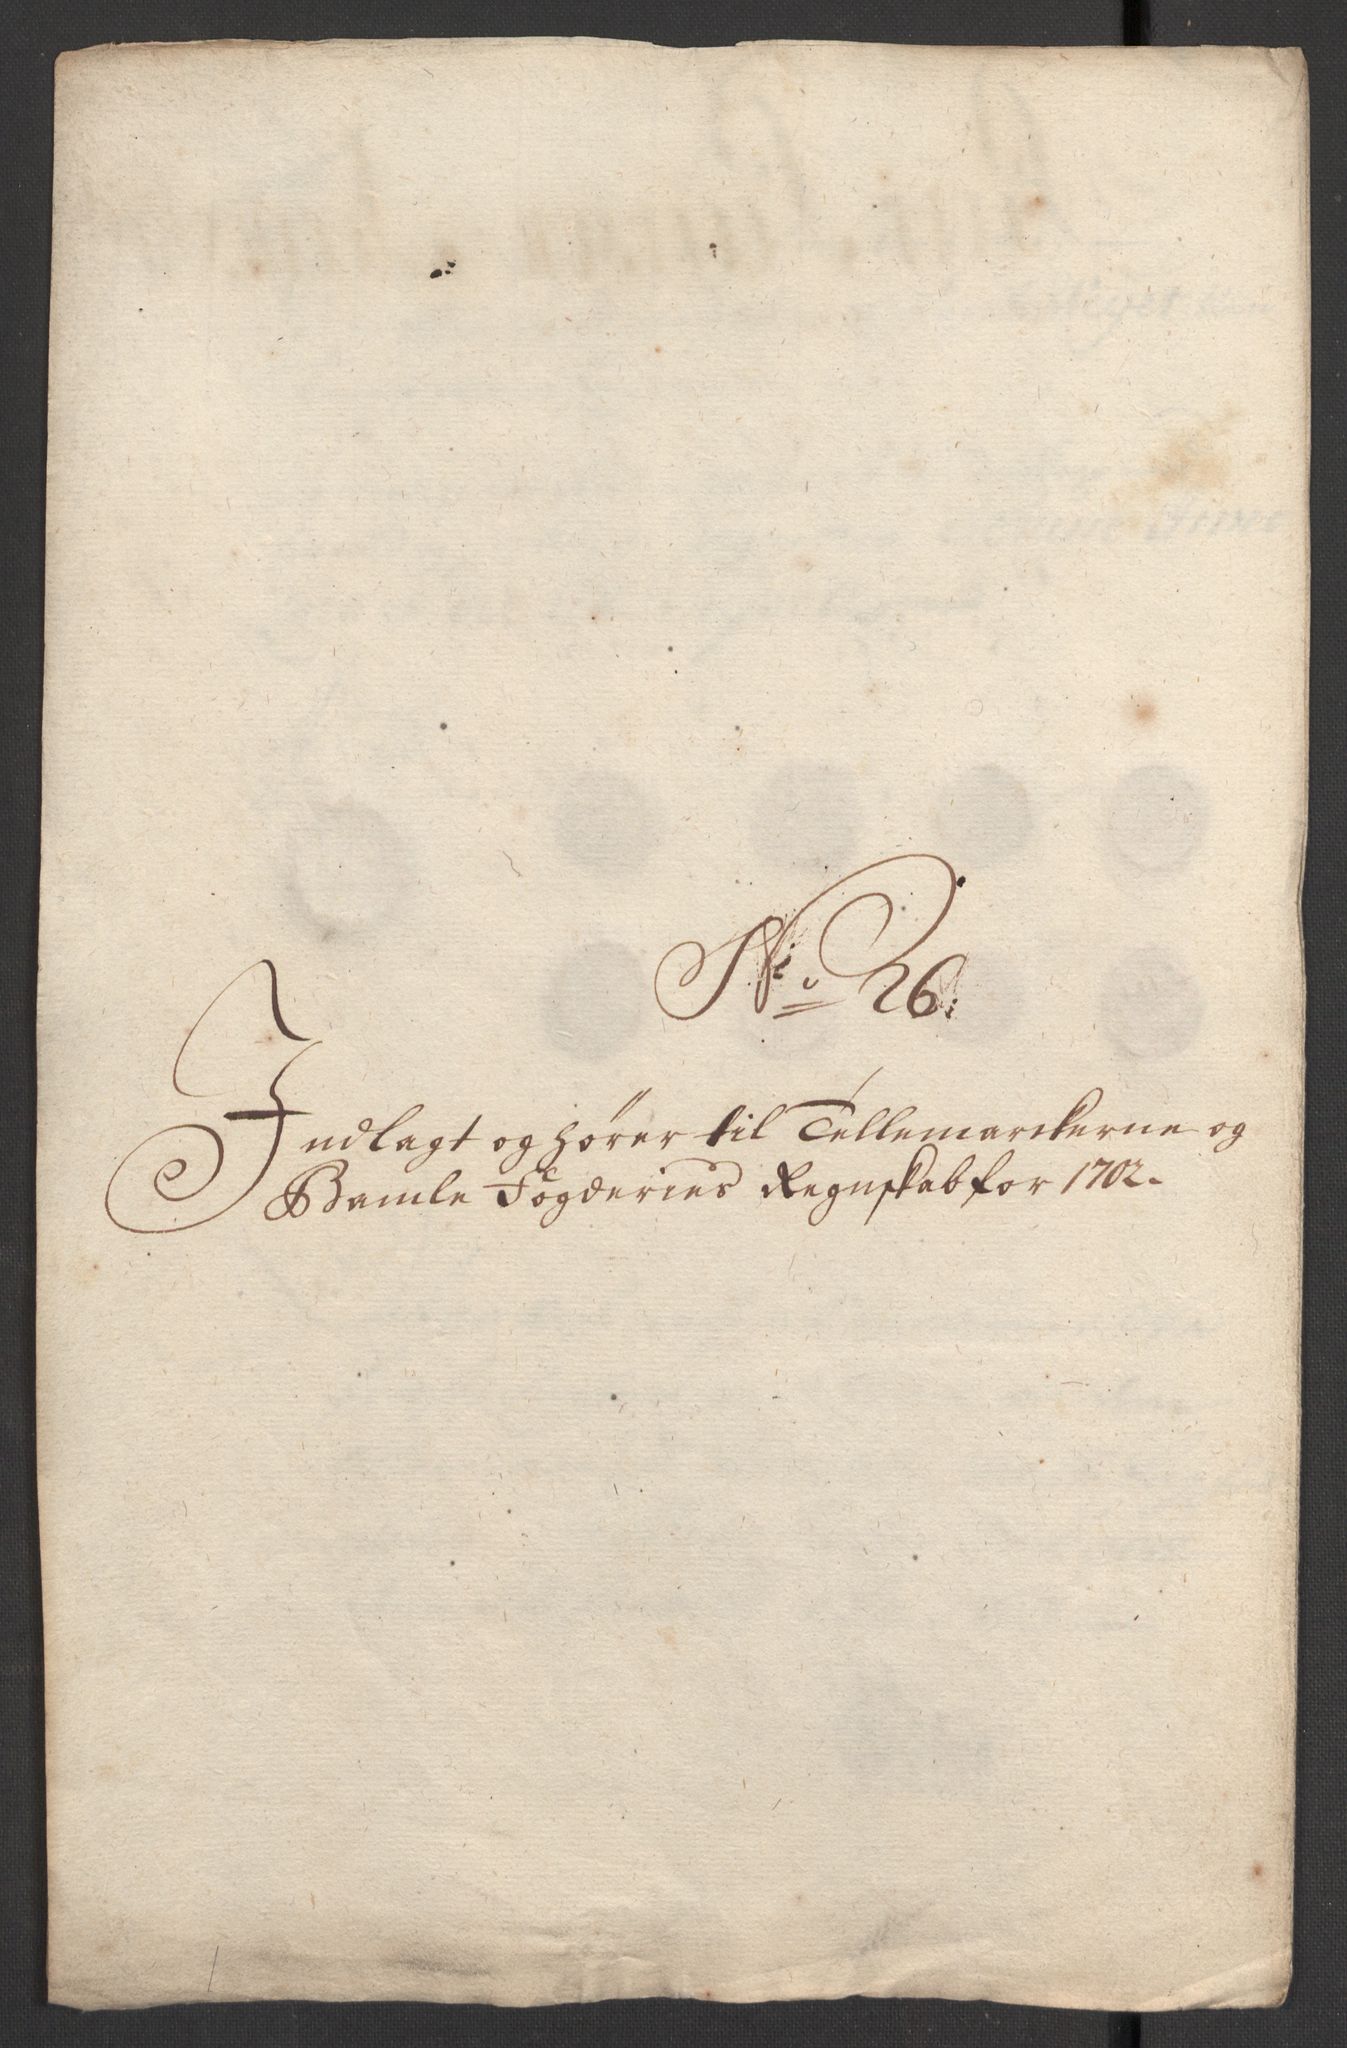 No. 26.
Indlagt og hører til Tellemarckerne og
Bamle Fogderies Regnskab for 1702.